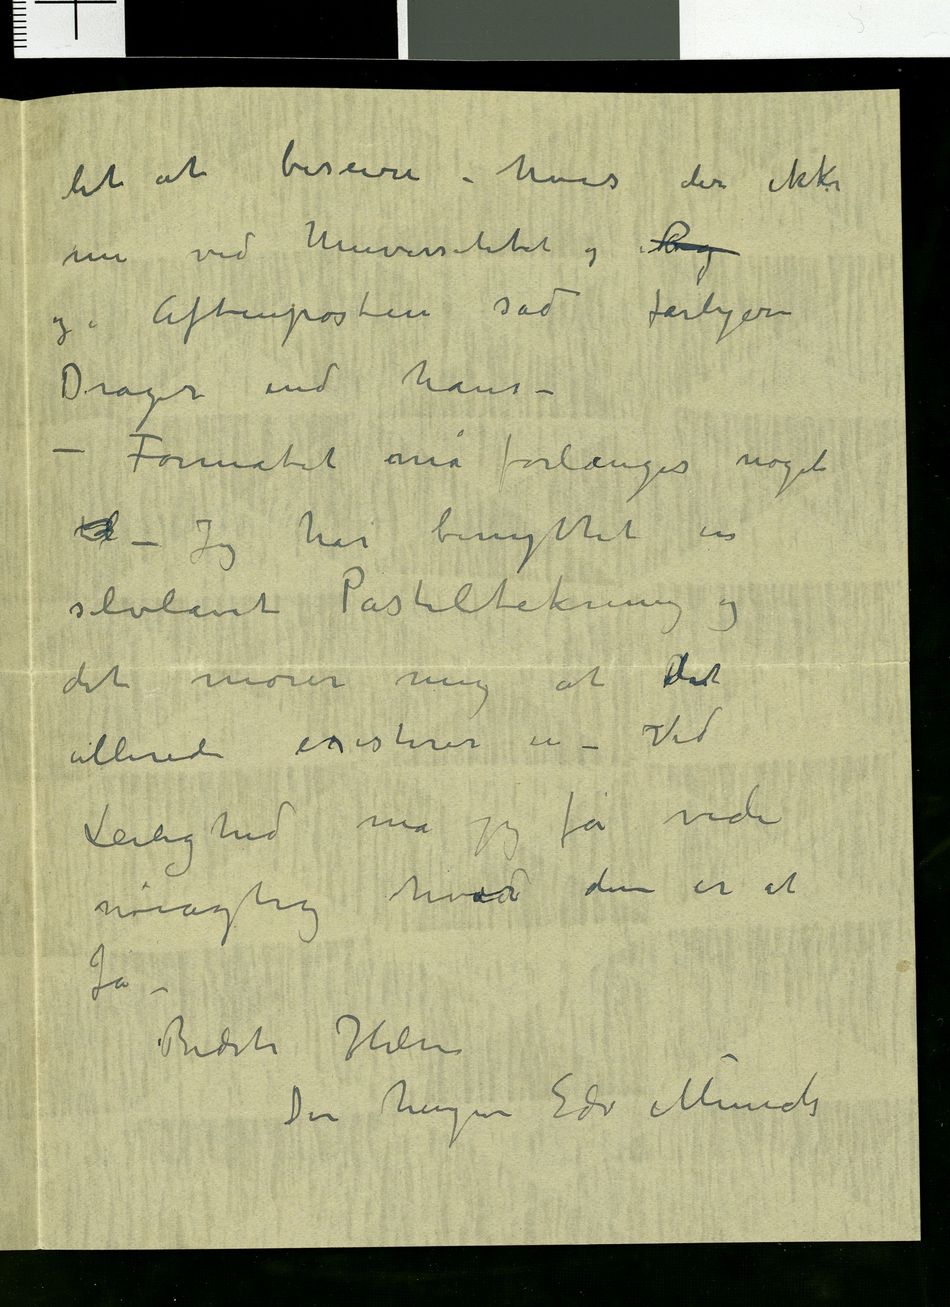 let at beseire – hvis der ikke
nu ved Universitetet og
og i Aftenposten sad farligere
Drager end hans –
– Formatet må forlænges noget
– Jeg har benyttet en
selvlavet Pasteltekning og
det morer mig at det
allerede existerer en – Ved
Leilighed må jeg få vide
nøiagtig hvad den er at
få –
Bedste Hilsen
Din hengivne Edv Munch